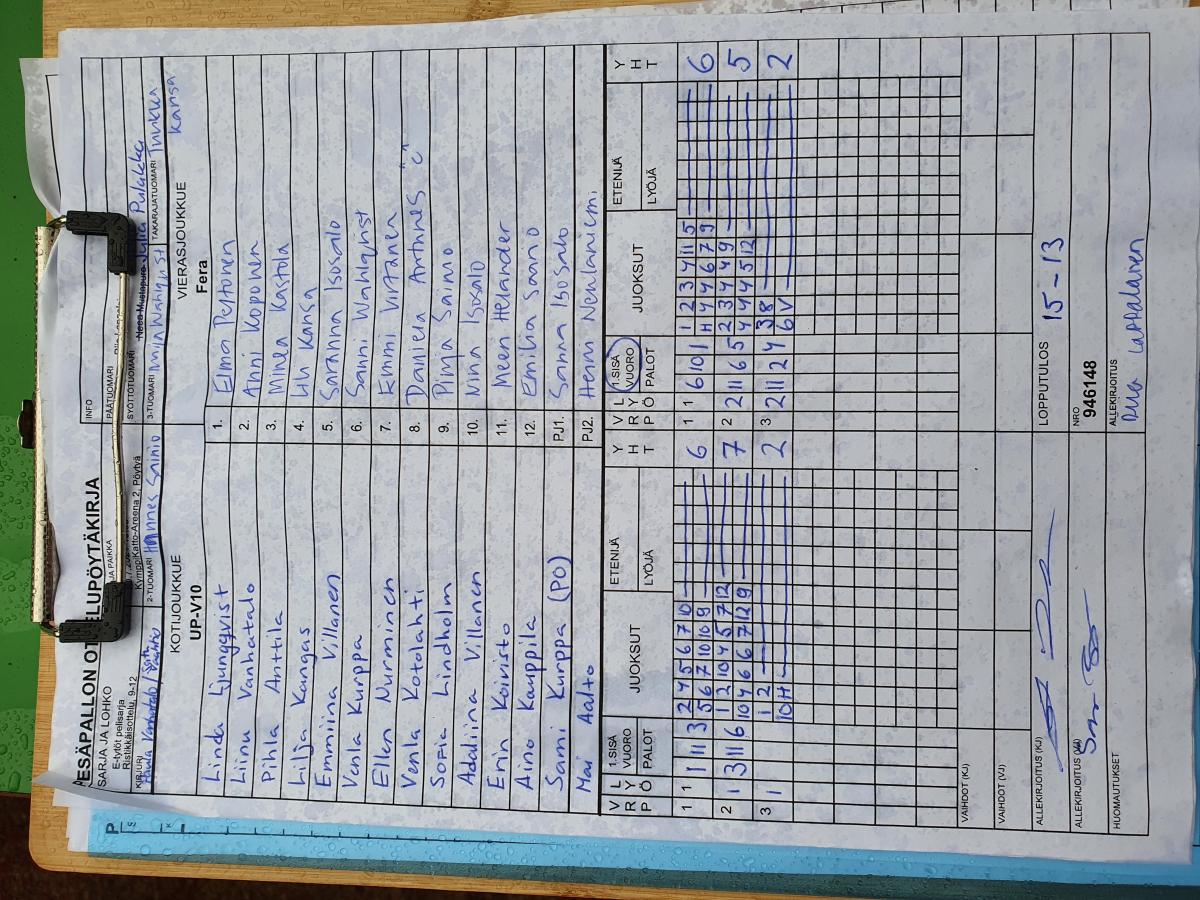 PESÄPALLON OTTELUPÖYTÄKIRJA
SARJA JA LOHKO
E-tytöt pelisarja
Ristikkäisottelu, 9-12
JA PAIKKA
KymppiKatto-Areena 2, Pöytyä
INFO
PÄÄTUOMARI
SYÖTTÖTUOMARI
Neea Mustapuro Julia Pulakka
KIRJURI
2-TUOMARI Hannes Sainio
3-TUOMARI Milja Wahlqvist
TAKARAJATUOMARI Jukka Kansa
KOTIJOUKKUE
UP-V10
VIERASJOUKKUE
Fera
Linda Ljungqvist 1. Elma Peltonen
Liinu Vanhatalo 2. Anni Koponen
Pihla Anttila 3. Minea Kastola
Lilja Kangas 4. Lili Kansa
Emmiina Villanen 5. Saranna Isosalo
Venla Kurppa 6. Sanni Wahlqvist
Ellen Nurminen 7. Emmi Virtanen
Venla Kotolahti 8. Daniela Anttones "c"
Sofia Lindholm 9. Pinja Saimo
Adaliina Villanen 10. Nina Isosalo
Erin Koivisto 11. Meeri Helander
Aino Kauppila 12. Emilia Saario
Sami Kurppa (PO) PJ1. Sanna Isosalo
Mari Aalto PJ2. Henri Neulaniemi
V L
R Y
P Ö
1.SISÄ
VUORO
PALOT
JUOKSUT
ETENIJÄ
LYÖJÄ
Y
H
T
V L
R Y
P Ö
1.SISÄ
VUORO
PALOT
JUOKSUT
ETENIJÄ
LYÖJÄ
Y
H
T
1 1 1 11 3 2 4 5 6 7 10 6 1 1 6 10 1 1 2 3 4 11 5 6
5 6 7 10 10 9 H 4 4 6 7 9
2 1 3 11 6 1 2 10 4 5 7 12 7 2 2 11 6 5 2 3 4 4 9 5
10 4 6 6 7 12 9 4 4 4 5 12
3 1 1 2 2 3 2 11 2 4 3 8 2
10 H 6 V
VAIHDOT (KJ)
VAIHDOT (VJ)
ALLEKIRJOITUS (KJ)
LOPPUTULOS 15-13
ALLEKIRJOITUS (VJ)
NRO
946148
HUOMAUTUKSET
ALLEKIRJOITUS